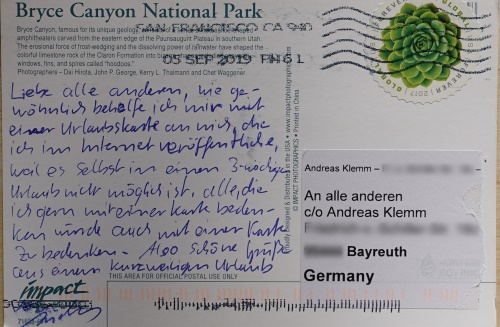 Bryce Canyon National Park
Bryce Canyon, famous for its unique geology,
amphitheaters carved from the eastern edge of the Paunsaugunt Plateau in southern Utah.
The erosional force of frost-wedging and the dissolving power of rainwater have shaped the
colorful limestone rock of the Claron Formation into
windows, fins, and spires called "hoodoos."
Photographers - Dai Hirota, John P. George, Kerry L. Thalmann and Chet Waggener
SAN FRANCISCO CA 940
05 SEP 2019 PM 6 L
FOREVER
GLOBAL
2017
Liebe alle anderen, wie ge-
wöhnlich behelfe ich mir mit
einer Urlaubskarte an mich, die
ich im Internet veröffentliche,
weil es selbst in einem 3-wöchigen
Urlaub nicht möglich ist, alle, die
ich gern mit einer Karte beden-
ken würde auch mit einer Karte
zu bedenken. Also schöne Grüße
aus einem kurzweiligen Urlaub
www.impactphotographics.com • Printed in China
Designed & Distributed in the USA
© IMPACT PHOTOGRAPHICS
Andreas Klemm –
An alle anderen
c/o Andreas Klemm
Bayreuth
Germany
THIS AREA FOR OFFICIAL POSTAL USE ONLY
impact